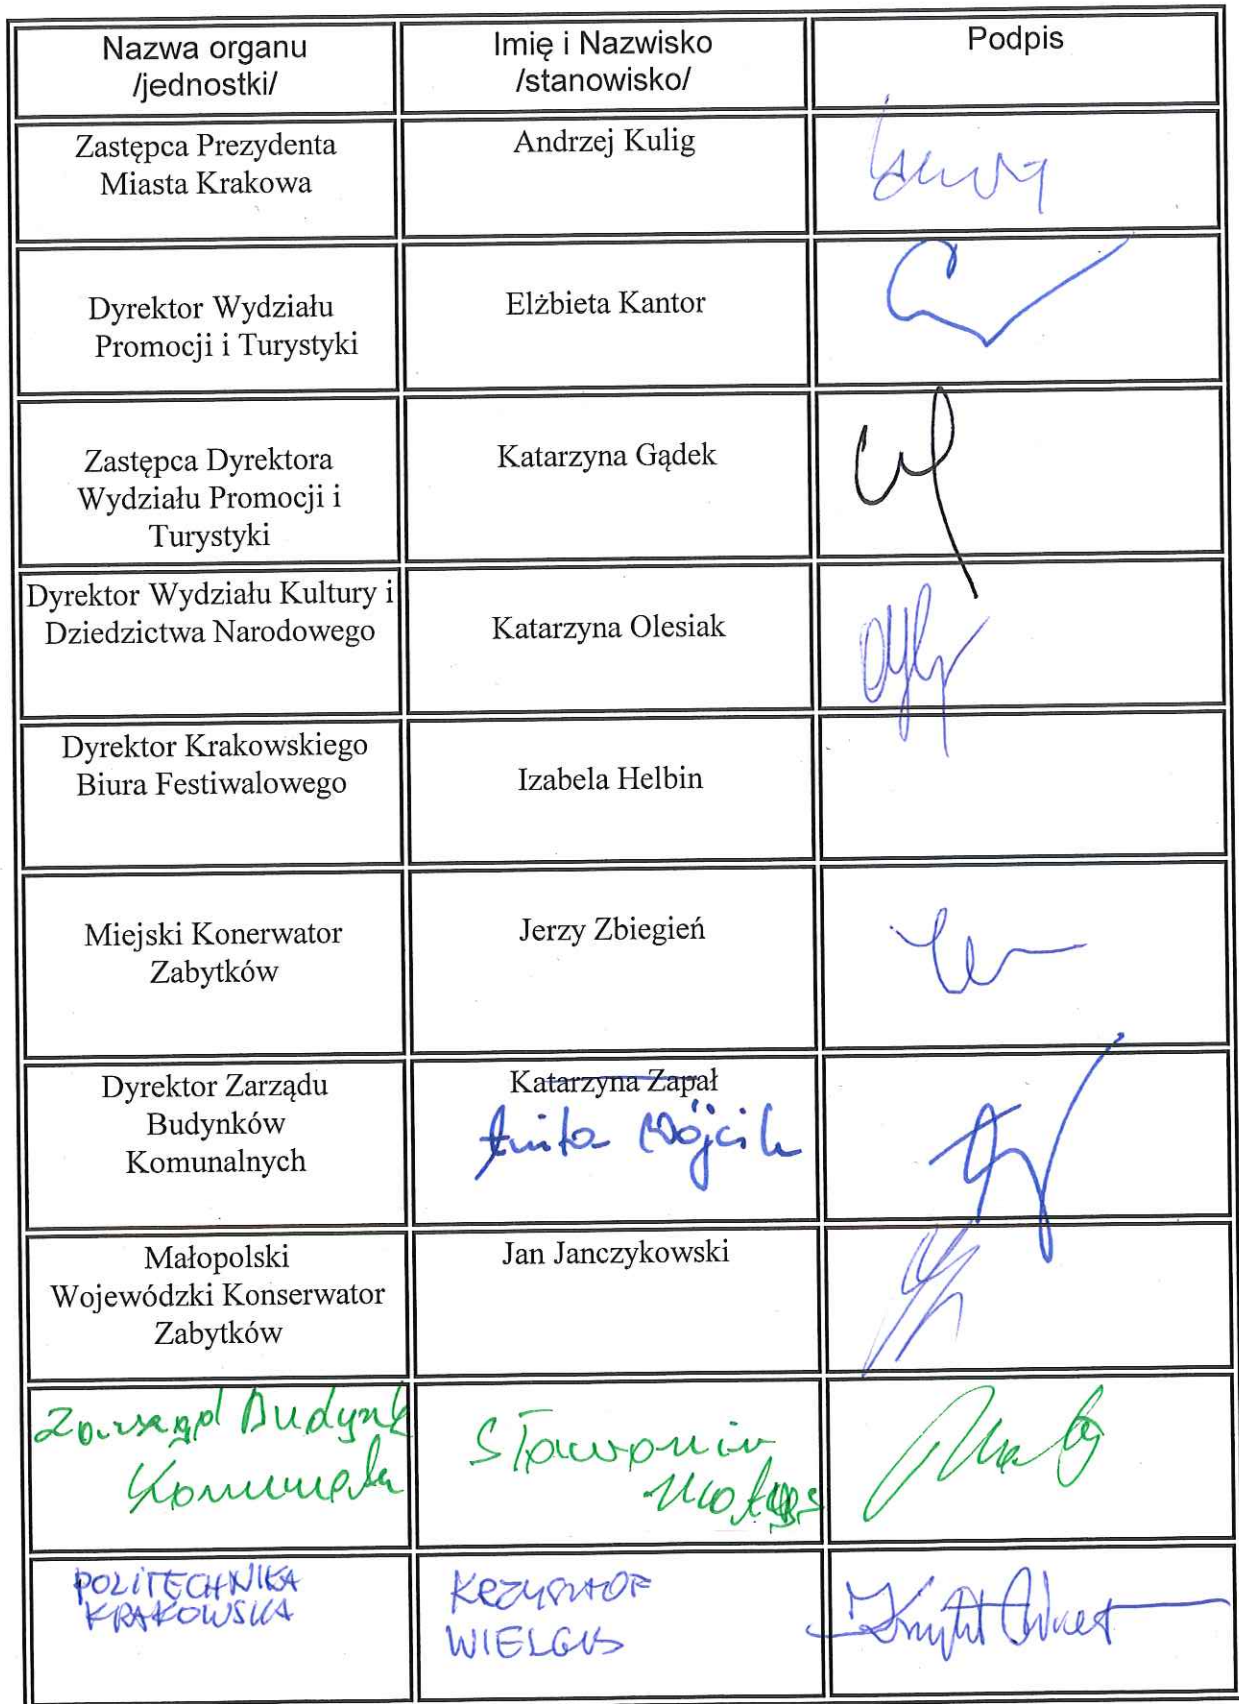 Nazwa organu
/jednostki/
Imię i Nazwisko
/stanowisko/
Podpis
Zastępca Prezydenta
Miasta Krakowa
Andrzej Kulig
Dyrektor Wydziału
Promocji i Turystyki
Elżbieta Kantor
Zastępca Dyrektora
Wydziału Promocji i
Turystyki
Katarzyna Gądek
Dyrektor Wydziału Kultury i
Dziedzictwa Narodowego
Katarzyna Olesiak
Dyrektor Krakowskiego
Biura Festiwalowego
Izabela Helbin
Miejski Konerwator
Zabytków
Jerzy Zbiegień
Dyrektor Zarządu
Budynków
Komunalnych
Katarzyna Zapał
Anita Wójcik
Małopolski
Wojewódzki Konserwator
Zabytków
Jan Janczykowski
Zarząd Budynk
Komunaln
POLITECHNIKA
KRAKOWSKA
KRZYSZTOF
WIELGUS